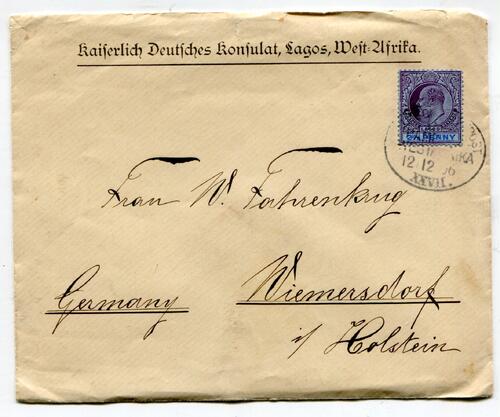 Kaiserlich Deutsches Konsulat, Lagos, West-Afrika.
PENNY
12 12 06
XXVII.
Frau W. Fahrenkrug
Germany Wiemersdorf
i/ Holstein